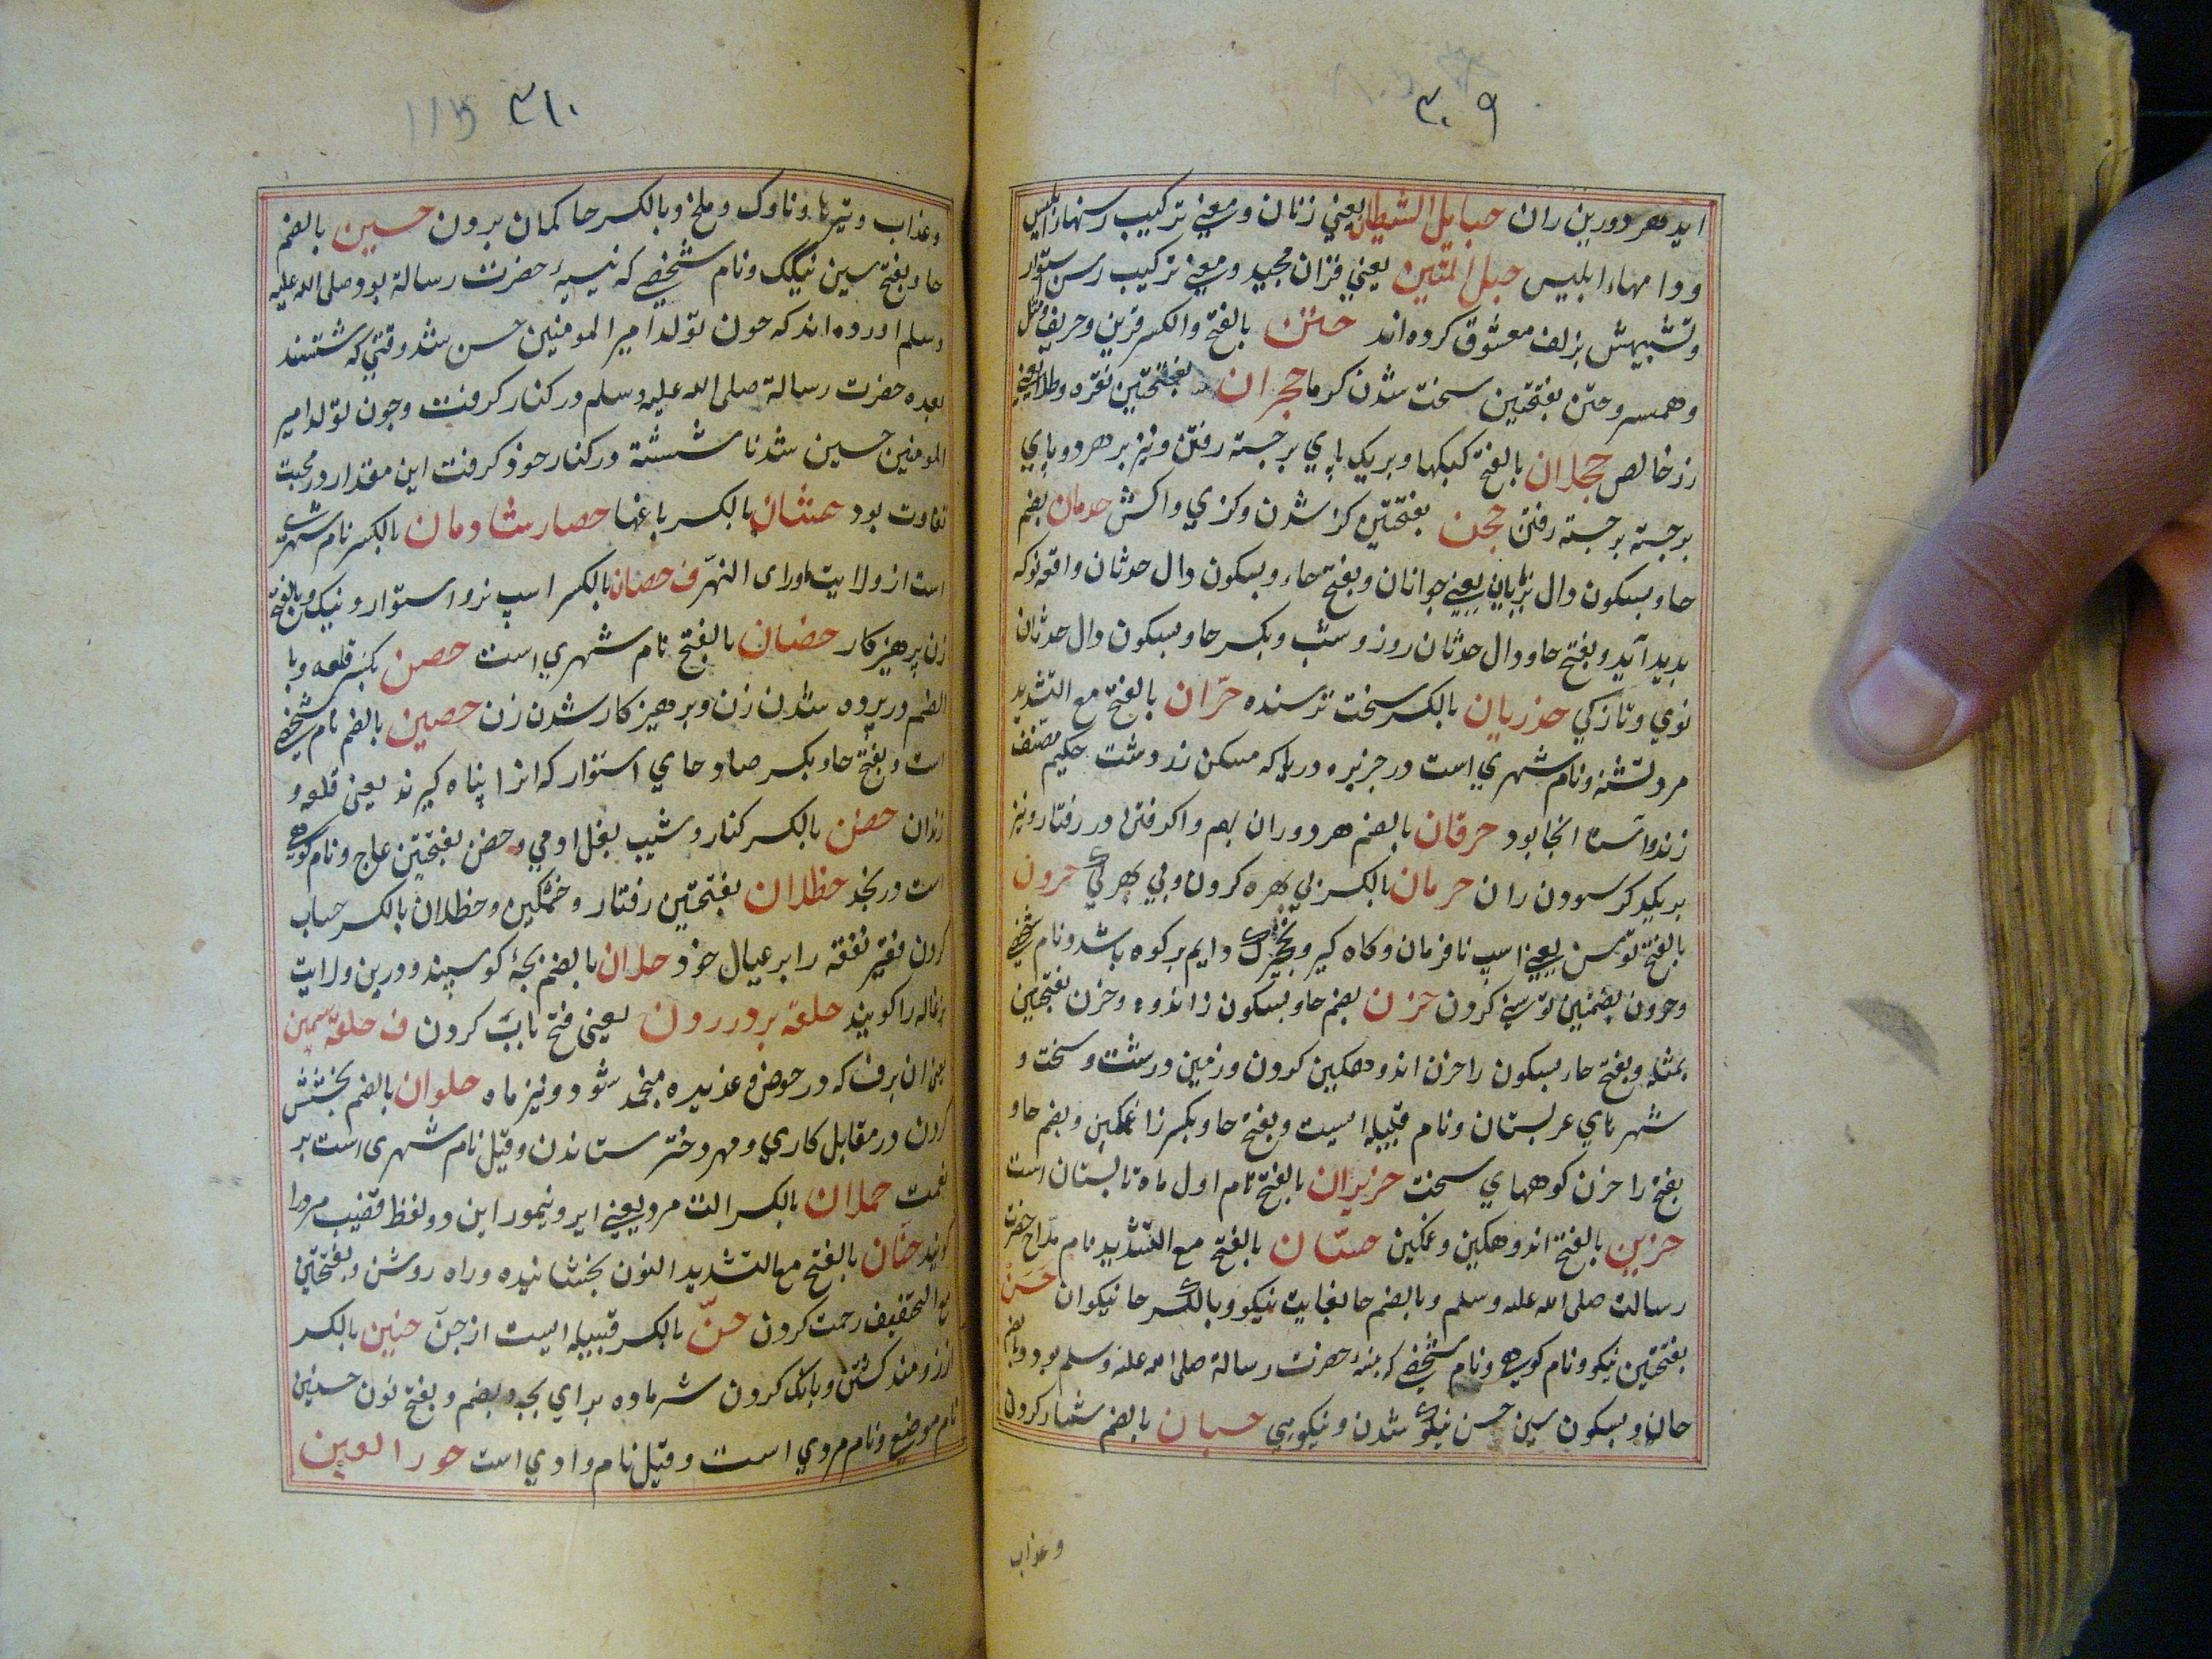 ۳۰۹
اید هر دو رین ران حبایل الشیطان یعنی زنان و معنی ترکیب رسنهاء ابلیس
و دامهاء ابلیس حبل المتین یعنی قران مجید و معنی ترکیب رسن استوار
و تشبیهش بزلف معشوق کرده اند حتن بالفتح والکسر قرین و حریف و مثل
و همسر و حتن بفتحتین سخت شدن کرما حجران بفتحتین نقره و طلا یعنی
زر خالص حجلان بالفتح کبکها و بریک پای برجسته رفتن و نیز بر هر دو پای
برجسته برجسته رفتن حجن بفتحتین کز شدن و کزی و اکش حدمان بضم
حا و بسکون دال یعنی جوانان و بفتح حاء و بسکون دال حدثان واقعه نو که
بدید آید و بفتح حا و دال حدثان روز و شب و بکسر حا و بسکون دال حدثان
نوی و تازکی حذریان بالکسر سخت ترسنده حرّان بالفتح مع التشدید
مرد تشنه و نام شهری است در جزیره دریا که مسکن زردشت حکیم مصنف
زند و استا انجا بود حرقان بالضم هر دو ران بهم واکرفتن در رفتار و نیز
بریکدیکر سودن ران حرمان بالکسر بی بهره کردن و بی بهرکی حرون
بالفتح توسن یعنی اسپ نافرمان و کاه کیر و دایم بر کوه باشد و نام شخصی
و حرون بضمتین توسنی کردن حزن بضم حا و بسکون زا اندوه و حزن بفتحتین
بمثله و بفتح حاء بسکون زا حزن اندوهکین کردن و زمین درشت و سخت و
شهرهای عربستان و نام قبیله ایست و بفتح حا و بکسر زا غمکین و بضم حا و
بفتح زا حزن کوههای سخت حزیران بالفتح نام اول ماه تابستان است
حزین بالفتح اندوهکین و غمکین حسّان بالفتح مع التشدید نام مدّاح حضرت
رسالت صلی الله علیه وسلم و بالضم حا بغایت نیکو و بالکسر حا نیکوان حسن
بفتحتین نیکو و نام کوهی و نام شخصی که نبیرۀ حضرت رسالة صلی الله علیه وسلم بود و بضم
حا و بسکون سین حسن نیکو شدن و نیکویی حسبان بالضم شمار کردن
و عذاب
۳۱۰
و عذاب و تیرها و ناوک و ملخ و بالکسر حا کمان بردن حسین بالضم
حا و بفتح سین نیک و نام شخصی که نبسۀ حضرت رسالة بود صلی الله علیه
وسلم اورده اند که چون تولد امیر المومنین حسن شد وقتی که شستند
بعده حضرت رسالة صلی الله علیه وسلم در کنار کرفت و چون تولد امیر
المومنین حسین شد ناشسته در کنار خود کرفت این مقدار در محبت
تفاوت بود حشّان بالکسر باغها حصار شادمان بالکسر نام شهری
است از ولایت ماورای النهر ف حصان بالکسر اسپ نر و استوار و نیک و بالفتح
زن پرهیزکار حضان بالفتح نام شهری است حصن بکسر قلعه و با
الضم در پرده شدن زن و پرهیزکار شدن زن حصین بالضم نام شخصی
است و بفتح حا و بکسر صاد جای استوار که انرا پناه کیرند یعنی قلعه و
زندان حضن بالکسر کنار و شیب بغل ادمی و حضن بفتحتین عاج و نام کوهی
است در نجد حظلان بفتحتین رفتار و خشمکین و حظلان بالکسر حساب
کردن فقیر نفقه را بر عیال خود حلان بالضم بچۀ کوسپند و درین ولایت
بزغاله را کویند حلقه بر در زدن یعنی فتح باب کردن ف حلقه سیمین
یعنی ان برف که در حوض و غدیره منجمد شود و نیز ماه حلوان بالضم بخشش
کردن در مقابل کاری و مهر دختر ستاندن و قیل نام شهری است پر
نعمت حملان بالکسر الت مرد یعنی ایر و نیمور این دو لفظ قضیب مرد را
کویند حنّان بالفتح مع التشدید النون بخشاینده و راه روشن و بفتحتین
مع التخفیف رحمت کردن حنّ بالکسر قبیله ایست از جن حنین بالکسر
ارزومند کشتن و بانک کردن شتر ماده برای بچه و بضم و بفتح نون حنین
نام موضع و نام مردی است و قیل نام وادی است حور العین